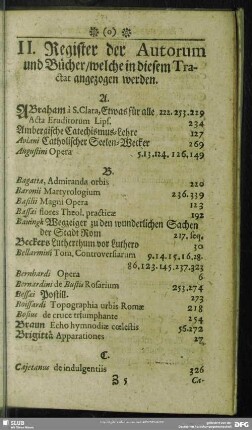 (o)
II. Register der Autorum
und Bücher/welche in diesem Tra-
ctat angezogen werden.
A.
ABraham à S. Clara, Etwas für alle 222. 253. 219
Acta Eruditorum Lips. 234
Ambergische Catechismus-Lehre 127
Aviani Catholischer Seelen-Wecker 269
Augustini Opera 5, 13, 124, 126, 149
B.
Bagatta, Admiranda orbis 220
Baronii Martyrologium 236, 339
Basilii Magni Opera 113
Bassæi flores Theol. practicæ 192
Bauingk Wegzeiger zu den wunderlichen Sachen
der Stadt Rom 217. seq.
Beckers Lutherthum vor Luthero 30
Bellarmini Tom, Controversiarum 9. 14. 15, 16. 18.
86, 123. 145. 237. 323
Bernhardi Opera 6
Bernardini de Bustis Rosarium 253. 274
Bessæi Postill. 273
Boissardi Topographia orbis Romæ 218
Bosius de cruce triumphante 154
Braun Echo hymnodiæ cœlestis 56. 272
Brigittä Apparationes 27
C.
Cajetanus de indulgentiis 326
Z 5 Ca-
SLUB